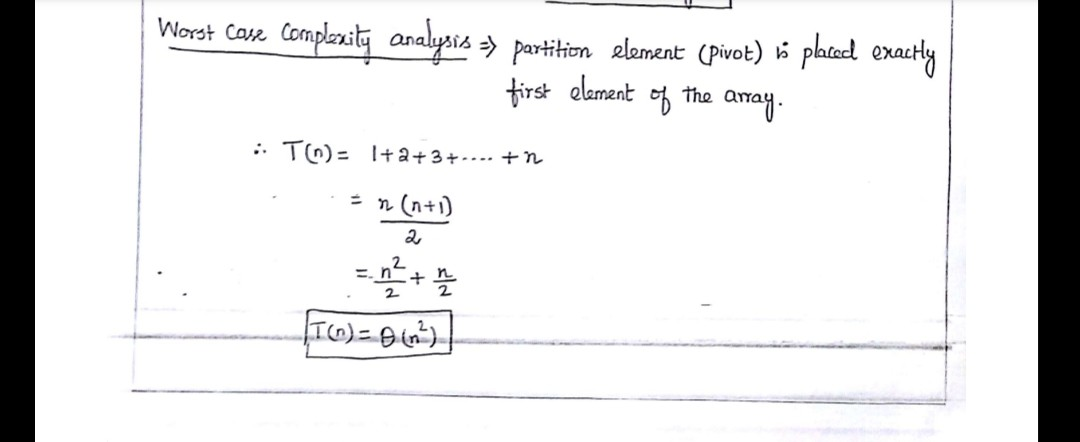 Worst Case Complexity analysis ⇒ partition element (pivot) is placed exactly
first element of the array.
∴ T(n) = 1+2+3+.... +n
= n(n+1)/2
= n²/2 + n/2
T(n) = θ(n²)